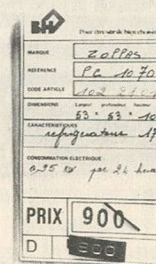 BHV
MARQUE ZOPPAS
REFERENCE PC 1070
CODE ARTICLE 102
DIMENSIONS Largeur profondeur hauteur
53 * 53 *
CARACTÉRISTIQUES
réfrigérateur 17
CONSOMMATION ÉLECTRIQUE :
0,95 par 24 heures
PRIX 900
D 900